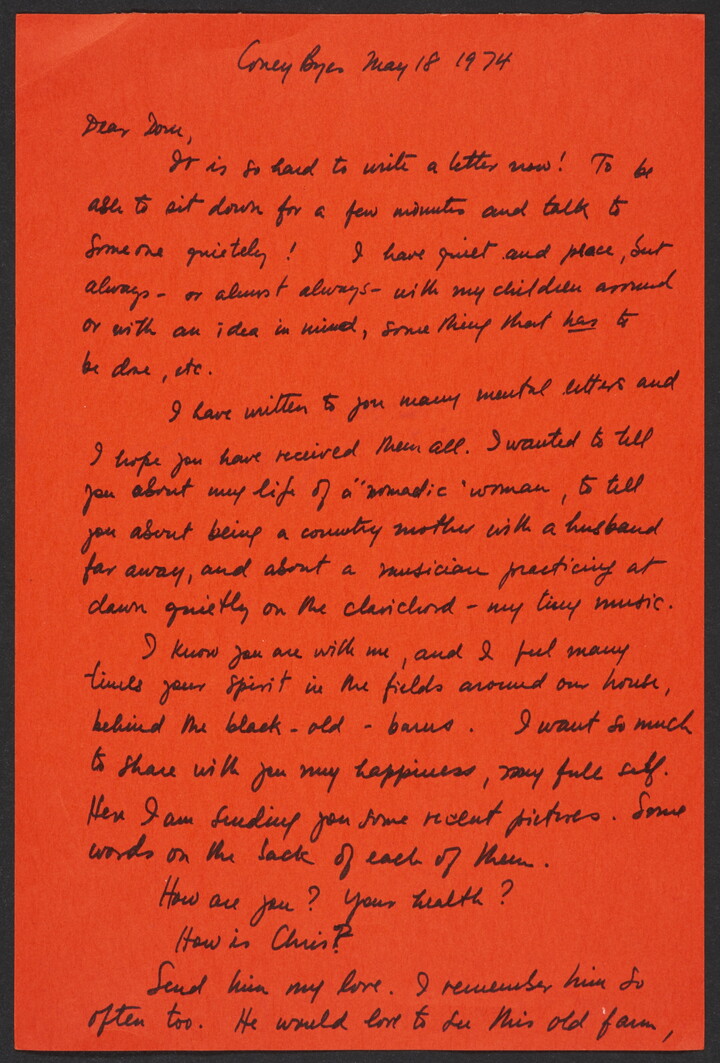 Coney Byes May 18 1974
Dear Dom,
It is so hard to write a letter now! To be
able to sit down for a few minutes and talk to
someone quietely! I have quiet and peace, but
always - or almost always - with my children around
or with an idea in mind, something that has to
be done, etc.
I have written to you many mental letters and
I hope you have received them all. I wanted to tell
you about my life of a "nomadic" woman, to tell
you about being a country mother with a husband
far away, and about a musician practicing at
dawn quietly on the clavichord - my tiny music.
I know you are with me, and I feel many
times your spirit in the fields around our house,
behind the black - old - barns. I want so much
to share with you my happiness, my full self.
Here I am sending you some recent pictures. Some
words on the back of each of them.
How are you? Your health?
How is Chris?
Send him my love. I remember him so
often too. He would love to see this old farm,